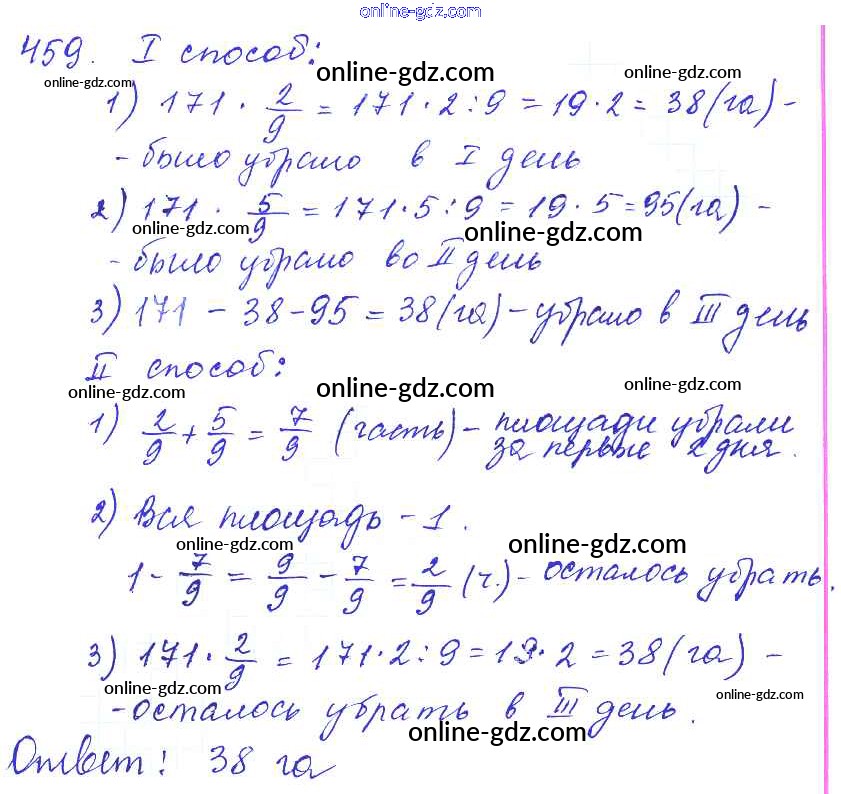 online-gdz.com
459. I способ:
online-gdz.com online-gdz.com online-gdz.com
1) 171 · 2/9 = 171 · 2 : 9 = 19 · 2 = 38 (га) -
- было убрано в I день
2) 171 · 5/9 = 171 · 5 : 9 = 19 · 5 = 95 (га) -
online-gdz.com online-gdz.com
- было убрано во II день
3) 171 - 38 - 95 = 38 (га) - убрано в III день
II способ:
online-gdz.com online-gdz.com online-gdz.com
1) 2/9 + 5/9 = 7/9 (часть) - площади убрали
за первые 2 дня.
2) Вся площадь - 1.
online-gdz.com online-gdz.com
1 - 7/9 = 9/9 - 7/9 = 2/9 (ч.) - осталось убрать.
3) 171 · 2/9 = 171 · 2 : 9 = 19 · 2 = 38 (га) -
online-gdz.com online-gdz.com
- осталось убрать в III день.
online-gdz.com
Ответ: 38 га